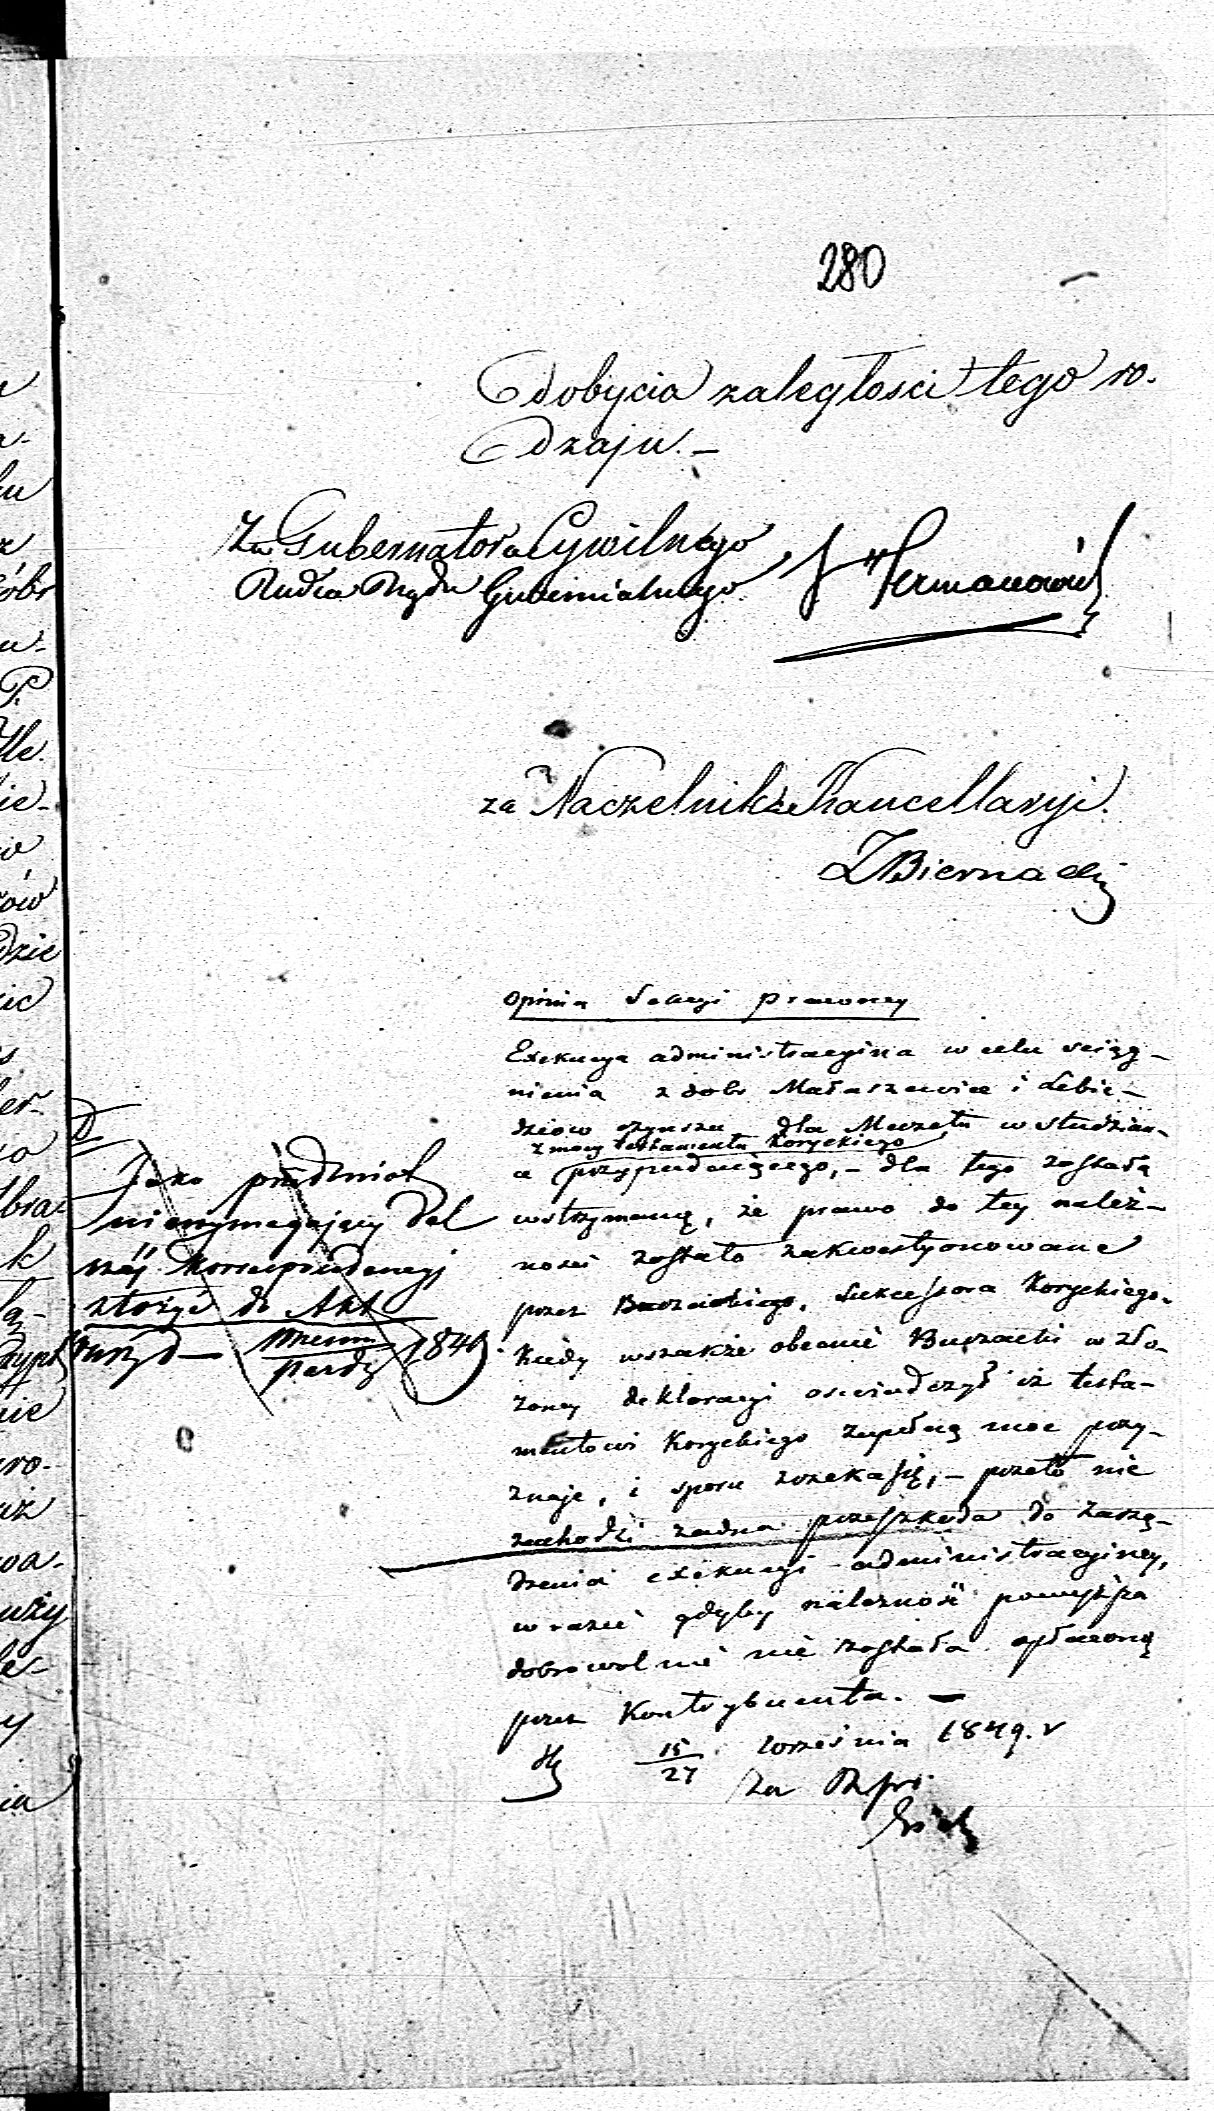 280
dobycia zaległości tego ro-
dzaju. —
Za Gubernatora Cywilnego
Radca Rządu Gubernialnego J Hermanowicz
za Naczelnika Kancellaryi.
Z Biernacki
Opinia Sekcyi Prawney
Exekucya administracyina w celu ściąg-
nienia z dobr Małaszewice i Lebie-
dziow czynszu dla Meczetu w Studzian-
z mocy testamentu Koryckiego
a przypadaiącego, – dla tego została
wstrzymaną, że prawo do tey należ-
ności zostało zakwestyonowane
przez Buczackiego, Sukcessora Koryckiego.
Kiedy wszakże obecnie Buczacki w zło-
żoney deklaracyi oświadczył iż testa-
mentowi Koryckiego zupełną moc przy-
znaje, i sporu zrzeka się, – przeto nie
zachodzi żadna przeszkoda do zarzą-
dzenia exekucyi administracyiney,
w razie gdyby należność powyższa
dobrowolnie nie została opłaconą
przez Kontrybuenta. —
15/27 Września 1849. r
Za
Jako przedmiot
niewymagający dal
széj Korrespondencyi
złożyć do Akt
Września
Pazdz 1849